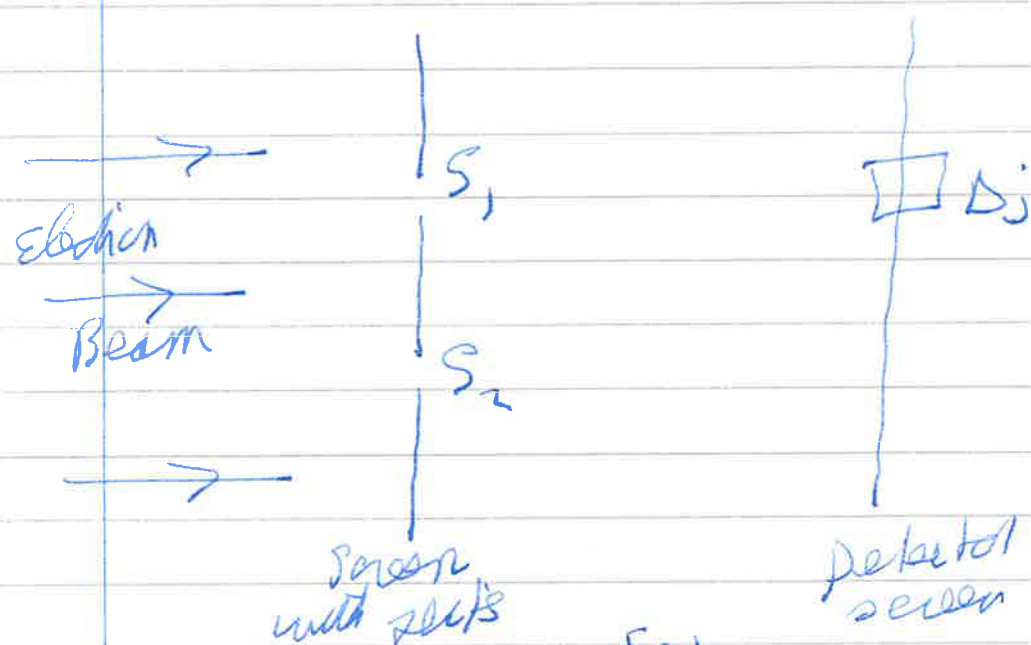 S₁
Dj
Electron
Beam
S₂
Screen
with slits
Detector
screen